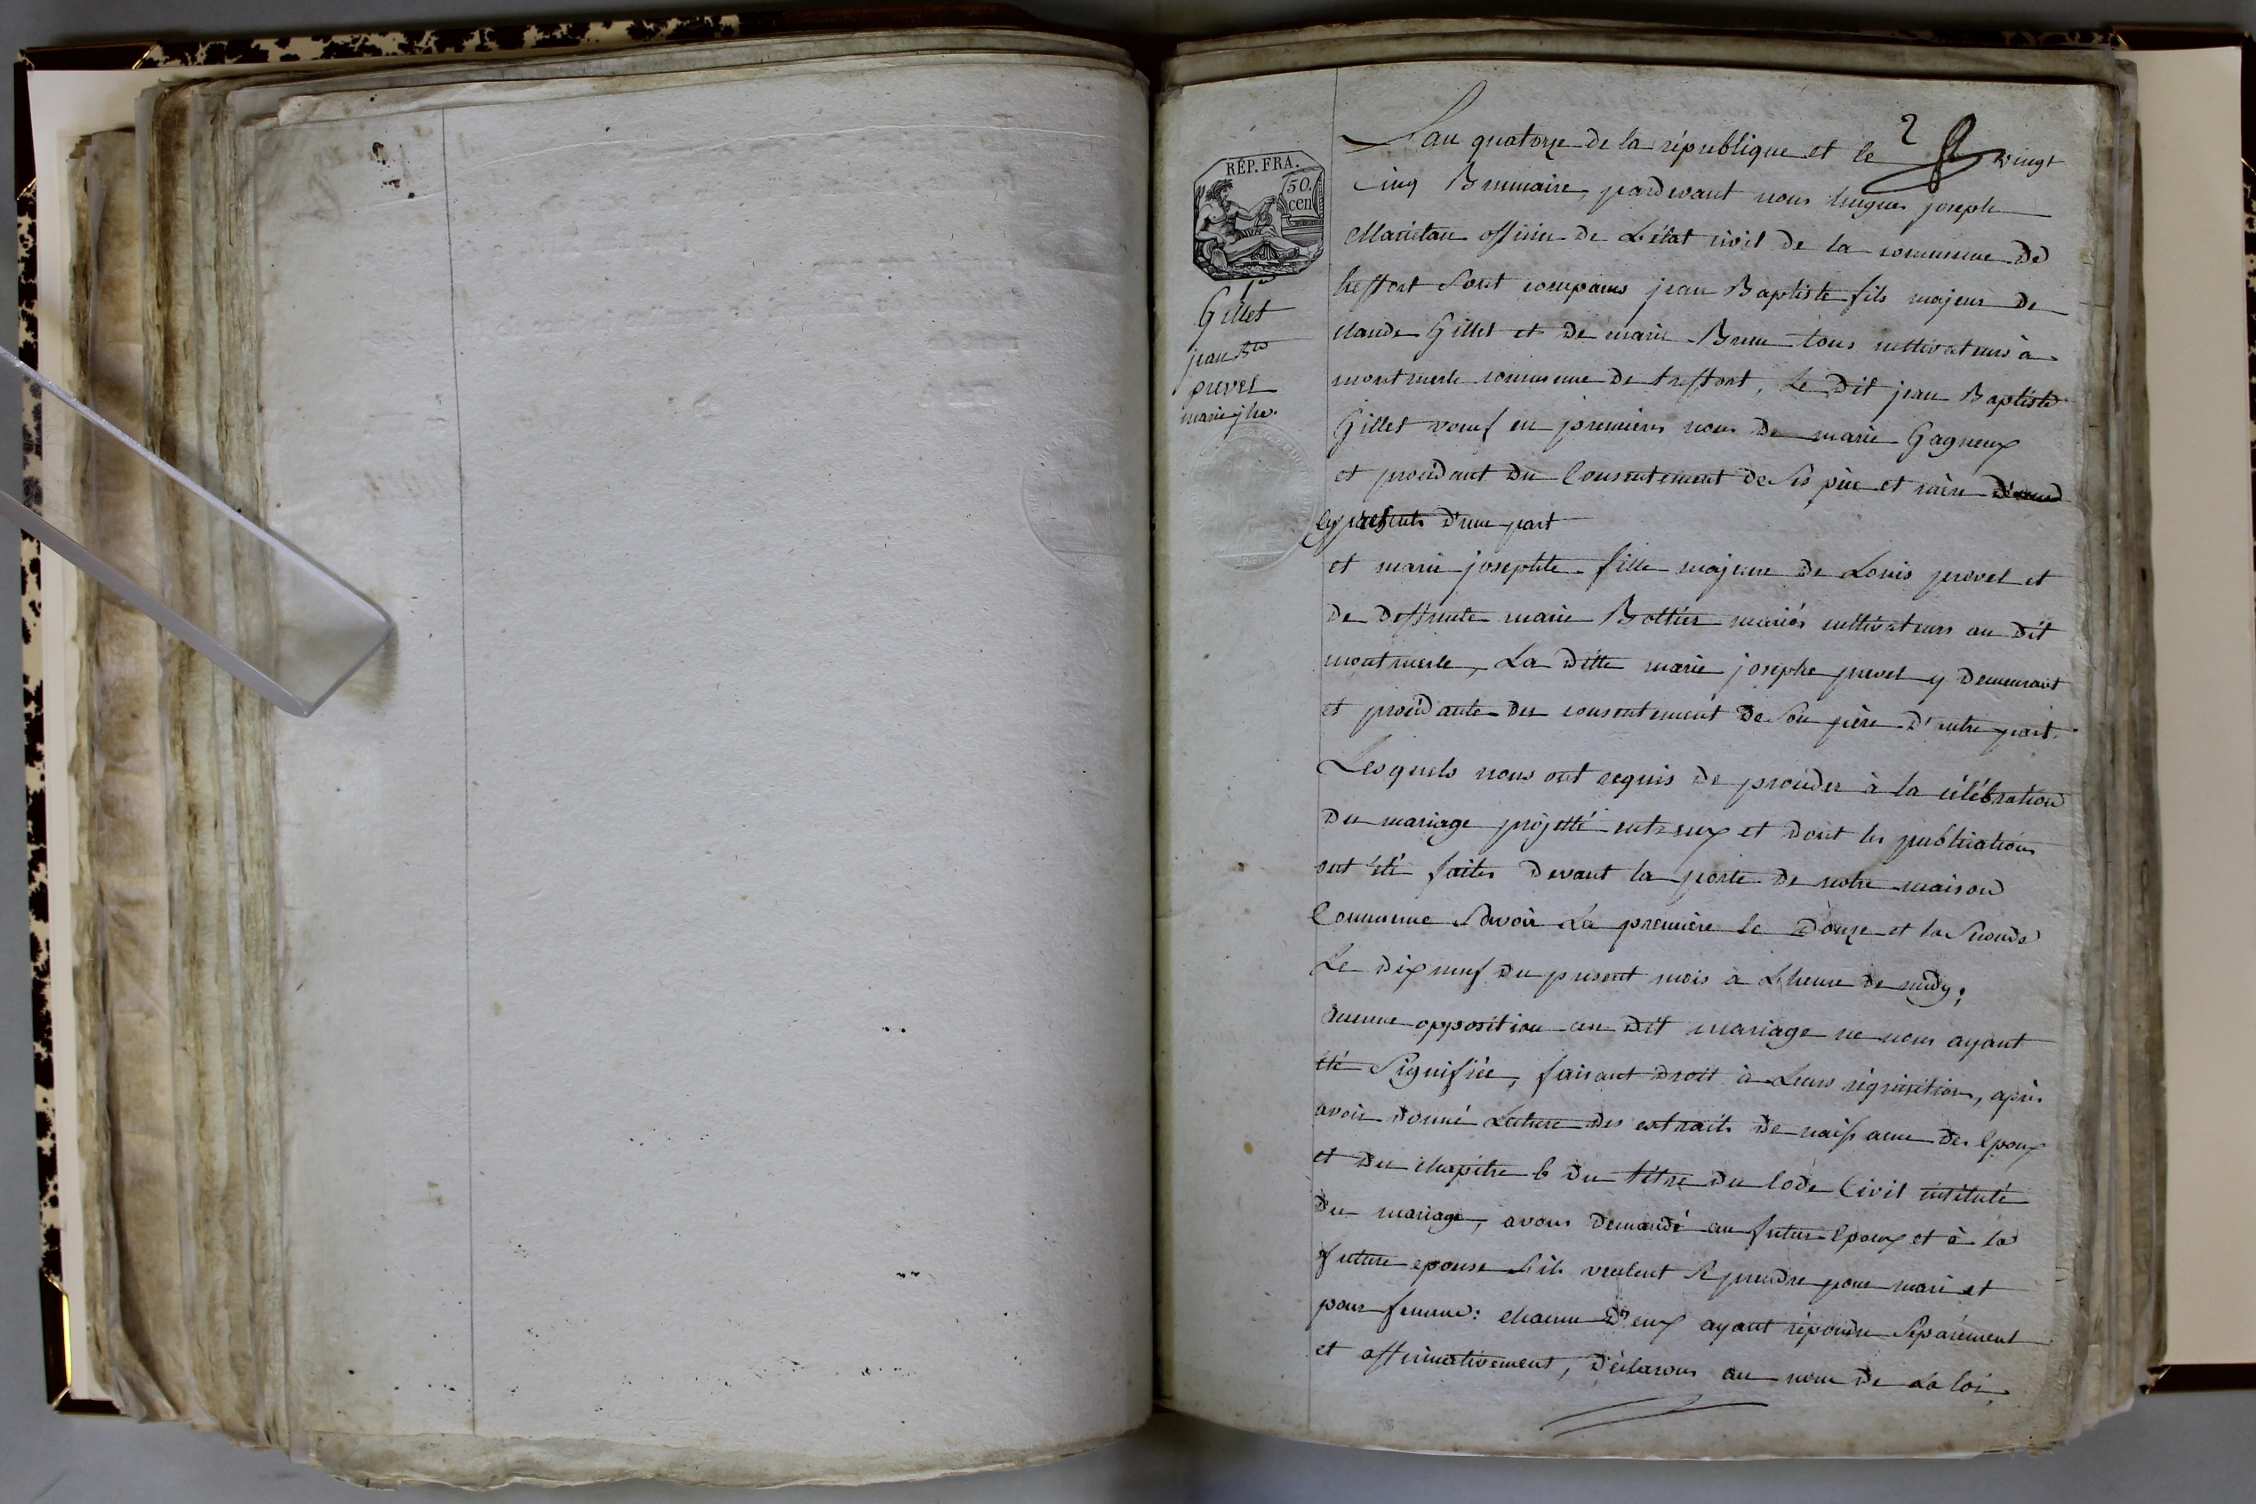 RÉP. FRA.
50.
cen
Gillet
jean Bte
puvel
marie jhe.
2
L'an quatorze de la république et le vingt
cinq Brumaire, pardevant nous hugues joseph
officier de L'état civil de la commune de
treffort Sont comparus jean Baptiste fils majeur de
claude Gillet et de marie Brun tous cultivateurs à
montmerle commune de treffort, Le dit jean Baptiste
Gillet veuf en premieres noces de marie Gagneux
et procédant du Consentement de Ses père et mère
cy présents d'une part
et marie josephte fille majeure de Louis puvel et
de deffunte marie Bottier mariés cultivateurs au dit
montmerle, La ditte marie josephe puvel y demeurant
et procédante du consentement de Son père d'autre part.
Lesquels nous ont requis de procéder à la célébration
du mariage projetté entr'eux et dont les publications
ont été faites devant la porte de notre maison
Commune Savoir La première le Douze et la Seconde
Le dix neuf du present mois à L'heure de midy;
Aucune opposition au dit mariage ne nous ayant
été Signifiée, faisant droit à Leurs réquisition, après
avoir donné Lecture des extraits de naissance des Epoux
et du chapitre 6 du titre du Code Civil intitulé
du mariage, avons demandé au futur Epoux et à la
future epouse S'ils veulent Se prendre pour mari et
pour femme: chacun d'eux ayant répondu Séparément
et affirmativement, déclarons au nom de La loi,